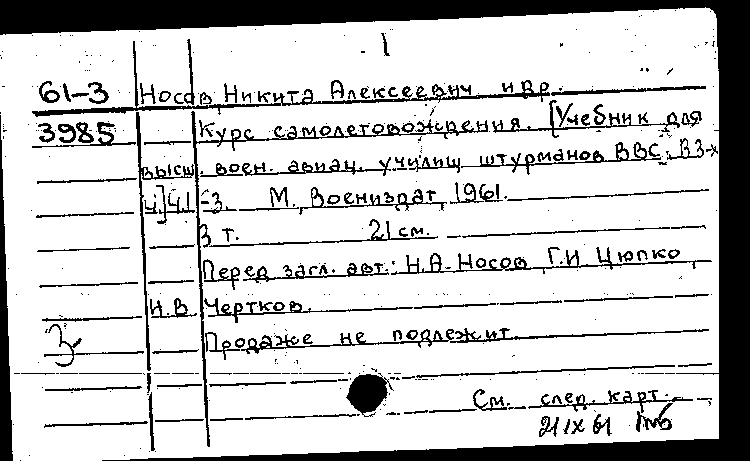 1
61-3 Носов, Никита Алексеевич и др.
3985 Курс самолетовождения. [Учебник для
высш. воен. авиац. училищ штурманов ВВС: В 3-х
ч.] Ч.1-3. М., Воениздат, 1961.
3 т. 21 см.
Перед загл. авт.: Н.А. Носов, Г.И. Цюпко,
Н.В. Чертков.
Продаже не подлежит.
3
См. след. карт.
21 IX 61